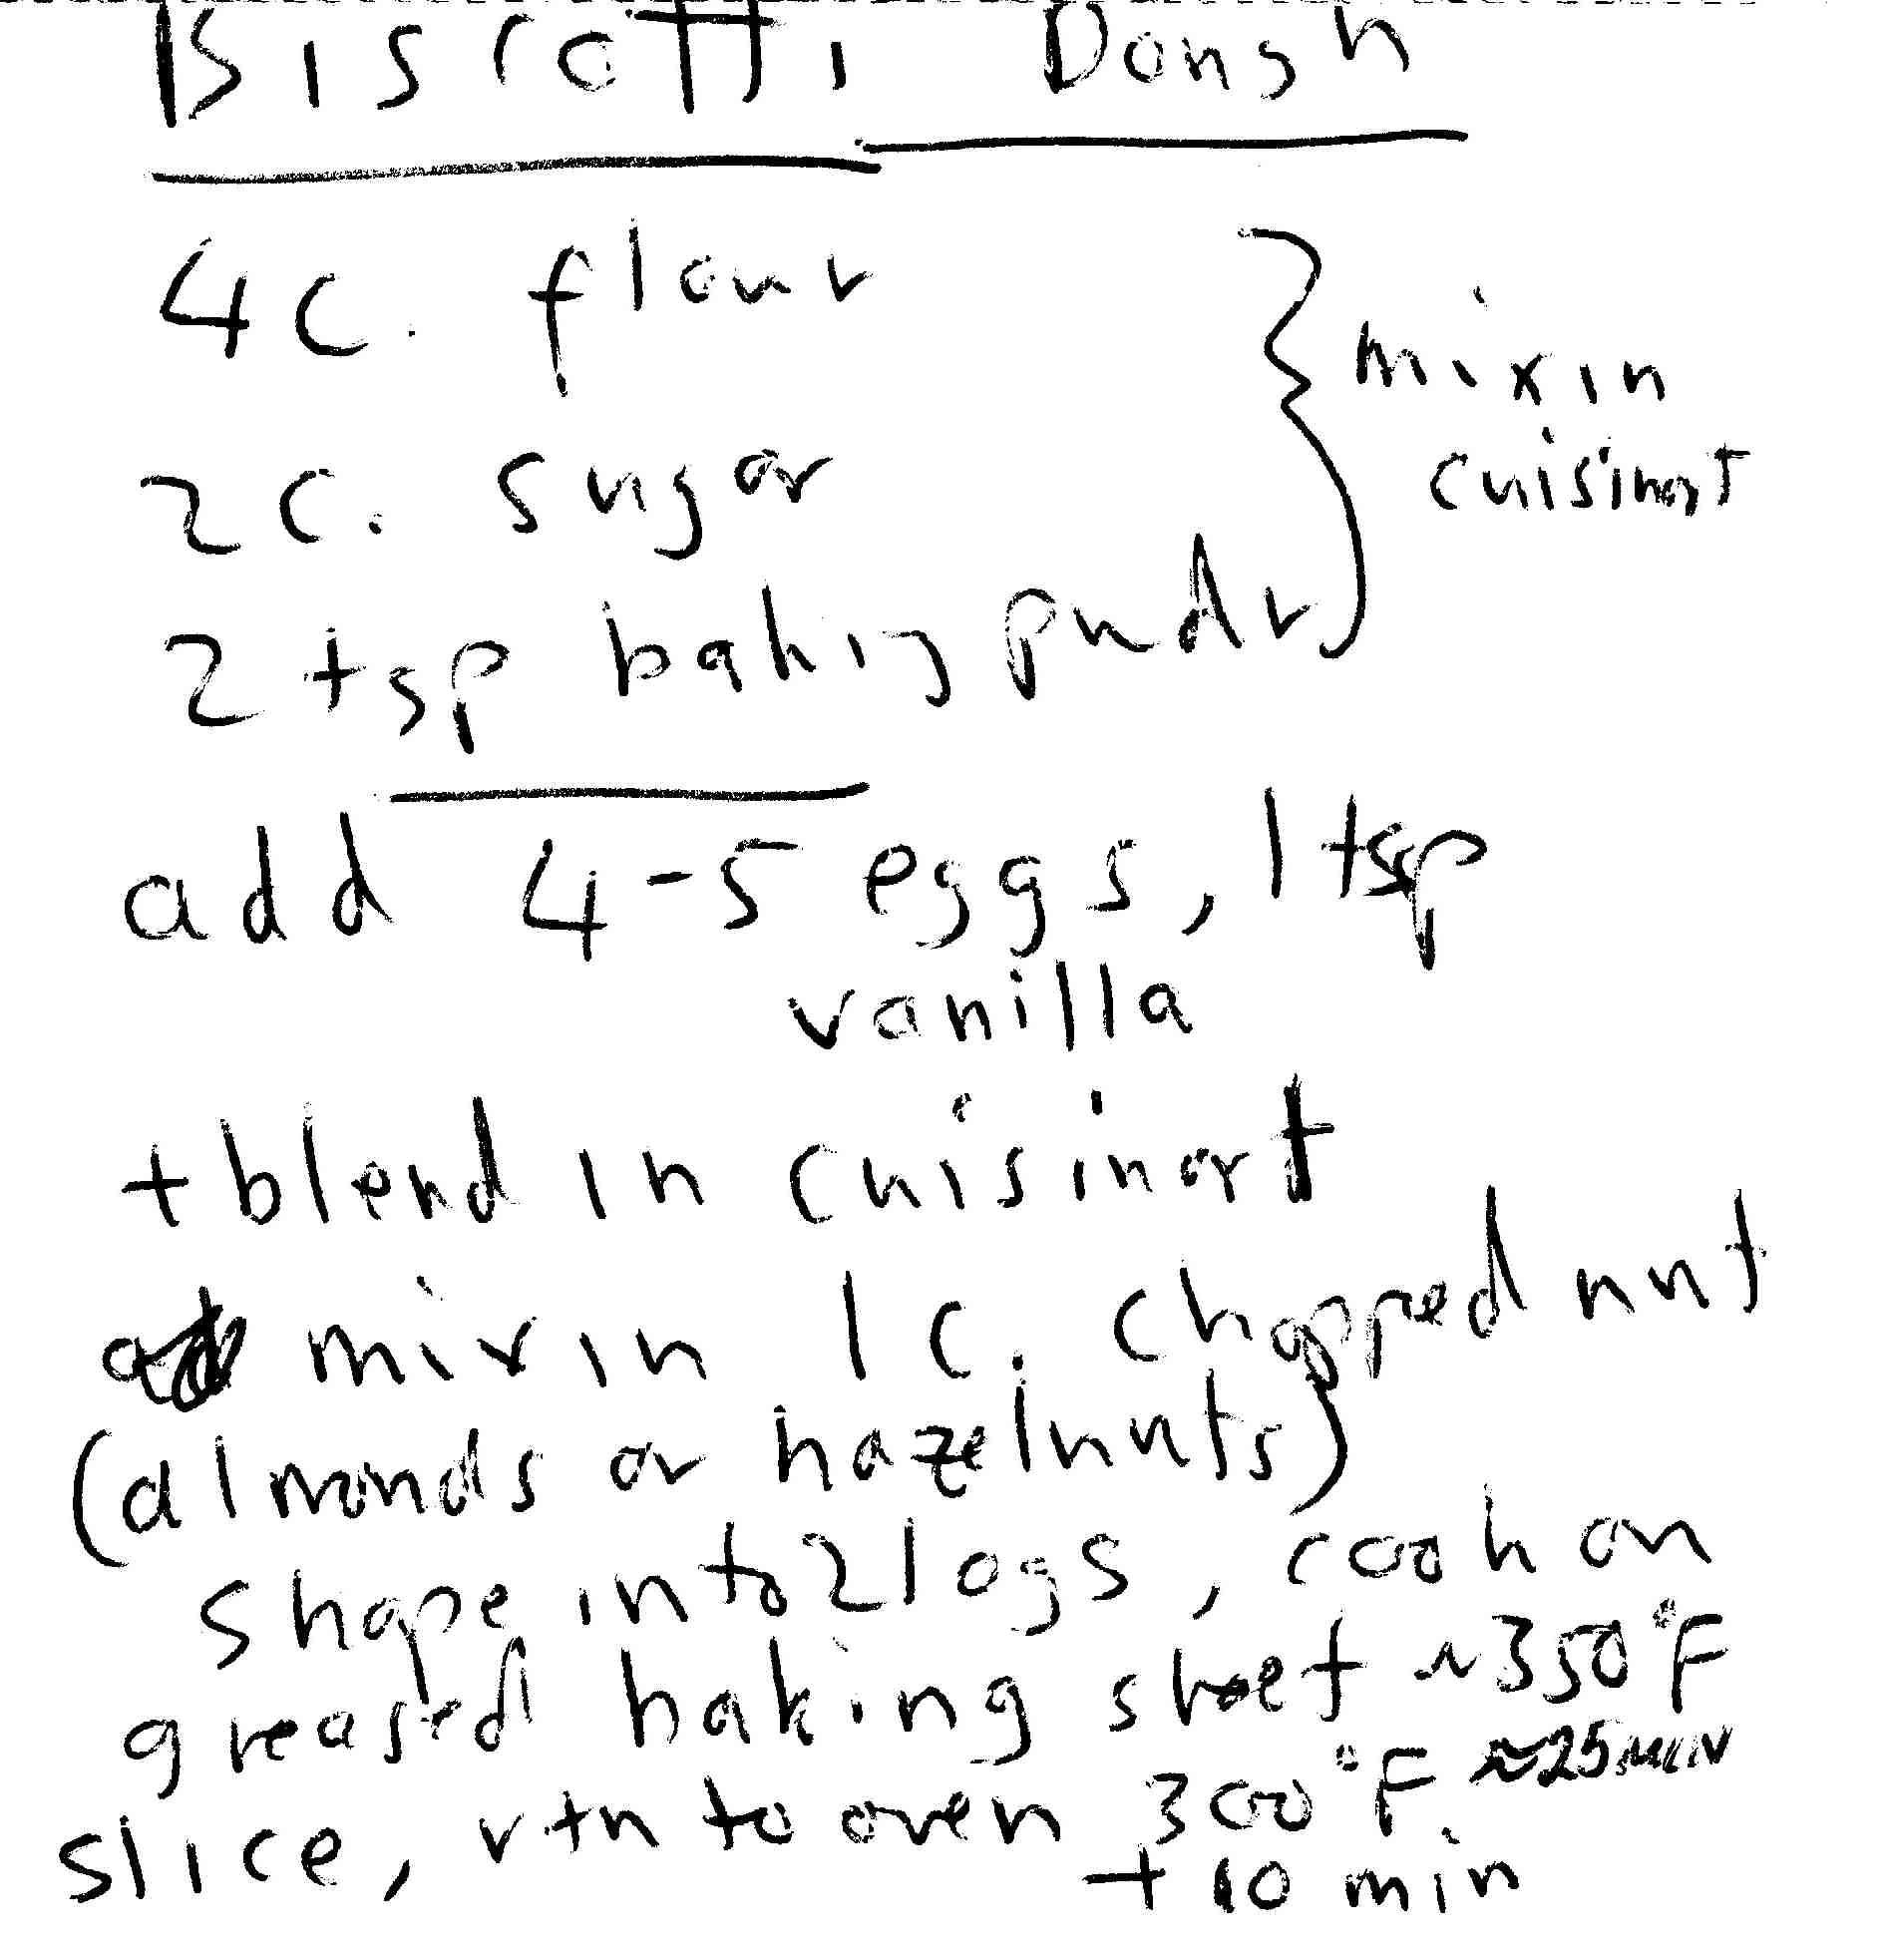 Biscotti Dough
4c. flour
mix in
cuisinart
2c. sugar
2 tsp baking pwdr
add 4-5 eggs, 1 tsp
vanilla
+ blend in cuisinart
mix in 1 c. chopped nut
(almonds or hazelnuts)
shape into 2 logs, cook on
greased baking sheet ~350°F
≈25 MIN
slice, rtn to oven 300°F
+ 10 min